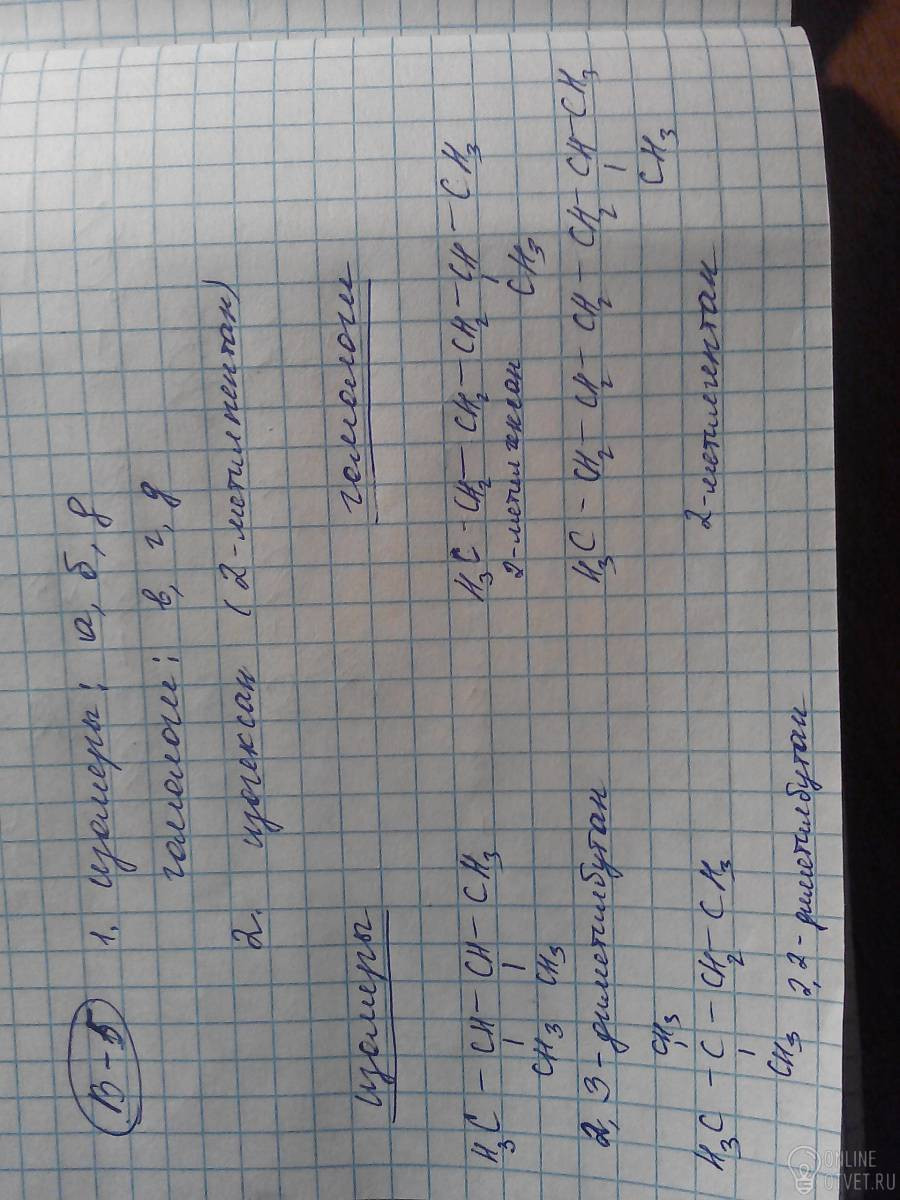 В-Б
1. изомеры; а, б, д
гомологи; в, г, д
2. изогексан (2-метилпентан)
изомеры
H₃C - CH - CH - CH₃
CH₃ CH₃
2,3-диметилбутан
CH₃
H₃C - C - CH₂ - CH₃
CH₃
2,2-диметилбутан
гомологи
H₃C - CH₂ - CH₂ - CH₂ - CH - CH₃
CH₃
2-метилгексан
H₃C - CH₂ - CH₂ - CH₂ - CH₂ - CH - CH₃
CH₃
2-метилгептан
ONLINE
OTVET.RU